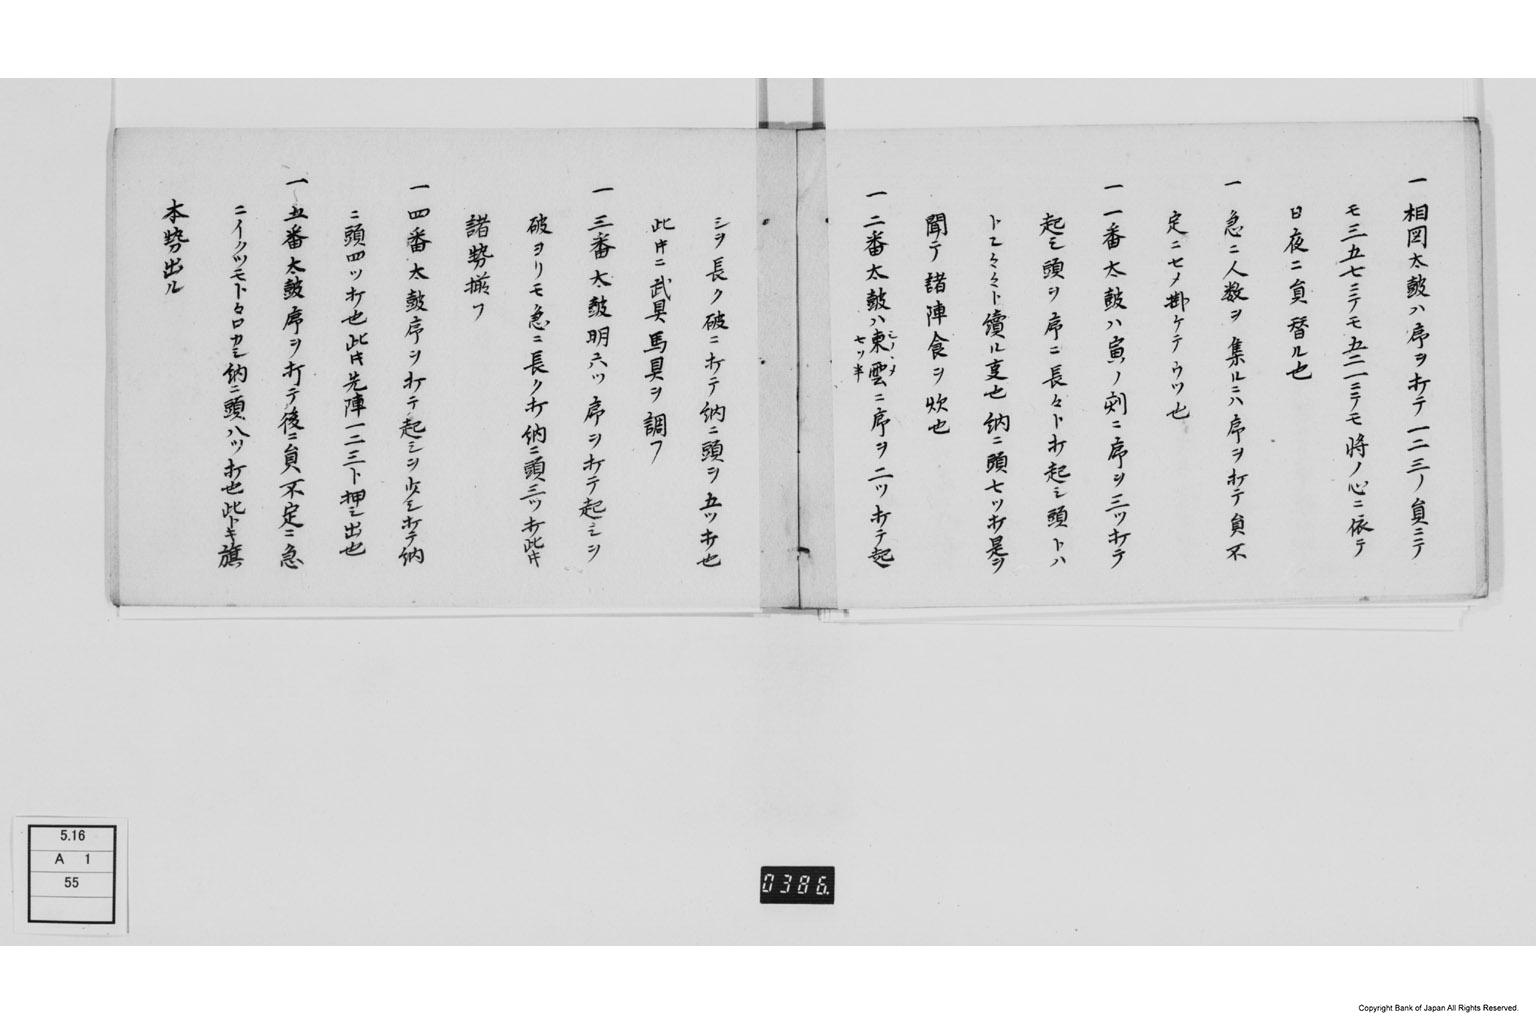 一相図太鼓ハ序ヲ打テ一二三ノ員ニテ
モ三五七ニテモ五二一ニテモ将ノ心ニ依テ
日夜ニ員替ル也
一急ニ人数ヲ集ルニハ序ヲ打テ員不
定ニセメ掛ケテウツ也
一一番太鼓ハ寅ノ刻ニ序ヲ三ツ打テ
起シ頭ヲ序ニ長々ト打起シ頭トハ
トヱ々々々ト續ル叓也納ニ頭七ツ打是ヲ
聞テ諸陣食ヲ炊也
一二番太鼓ハ東雲ニ序ヲ二ツ打テ起
シノヽメ
七ツ半
シヲ長ク破ニ打テ納ニ頭ヲ五ツ打也
此時ニ武具馬具ヲ調フ
一三番太鼓明六ツ序ヲ打テ起シヲ
破ヲリモ急ニ長ク打納ニ頭三ツ打此時
諸勢揃フ
一四番太鼓序ヲ打テ起シヲ少シ打テ納
ニ頭四ツ打也此時先陣一二三ト押シ出也
一五番太鼓序ヲ打テ後ニ員不定ニ急
ニイクツモトヽロカシ納ニ頭八ツ打也此トキ旗
本勢出ル
5.16
A 1
55
0386
Copyright Bank of Japan All Rights Reserved.